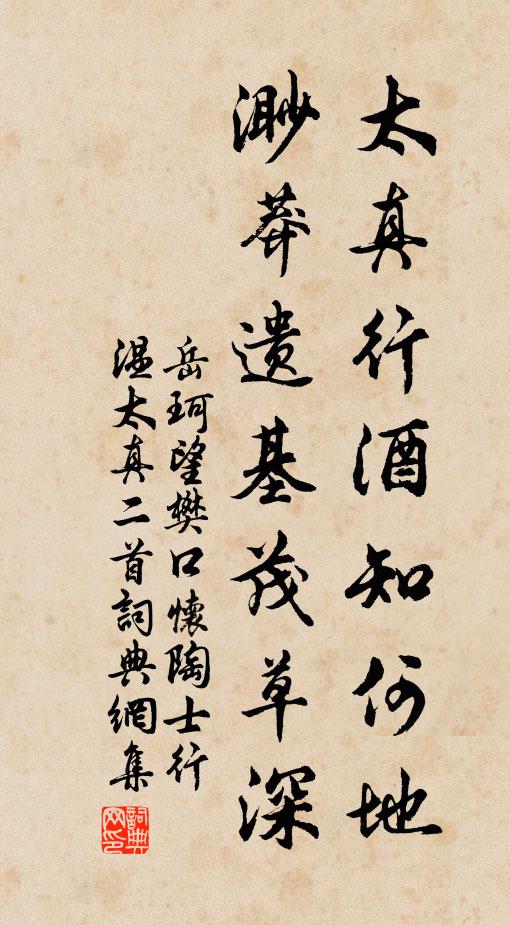 太真行酒知何地
渺莽遗基茂草深
岳珂望樊口懷陶士行
温太真二首詞典網集
詞典网印